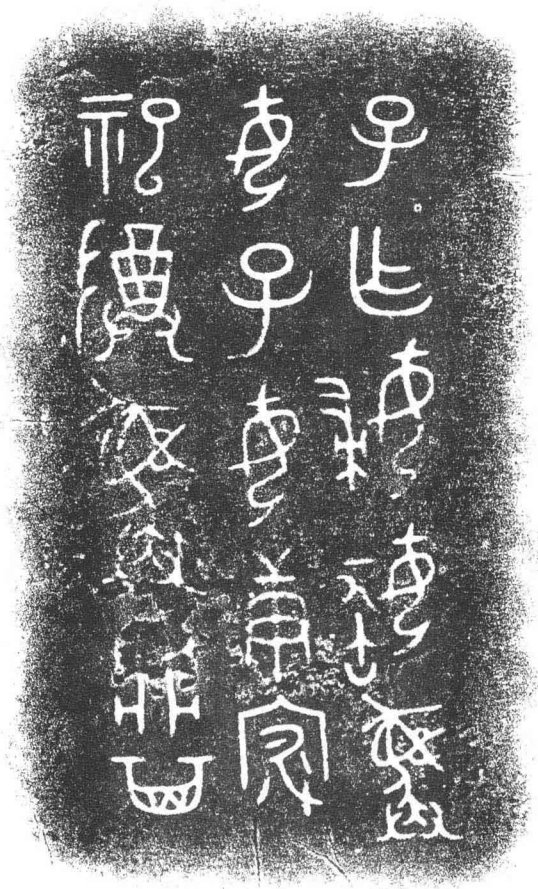 子乍婦婤彝
女子母庚宓
祀尊彝